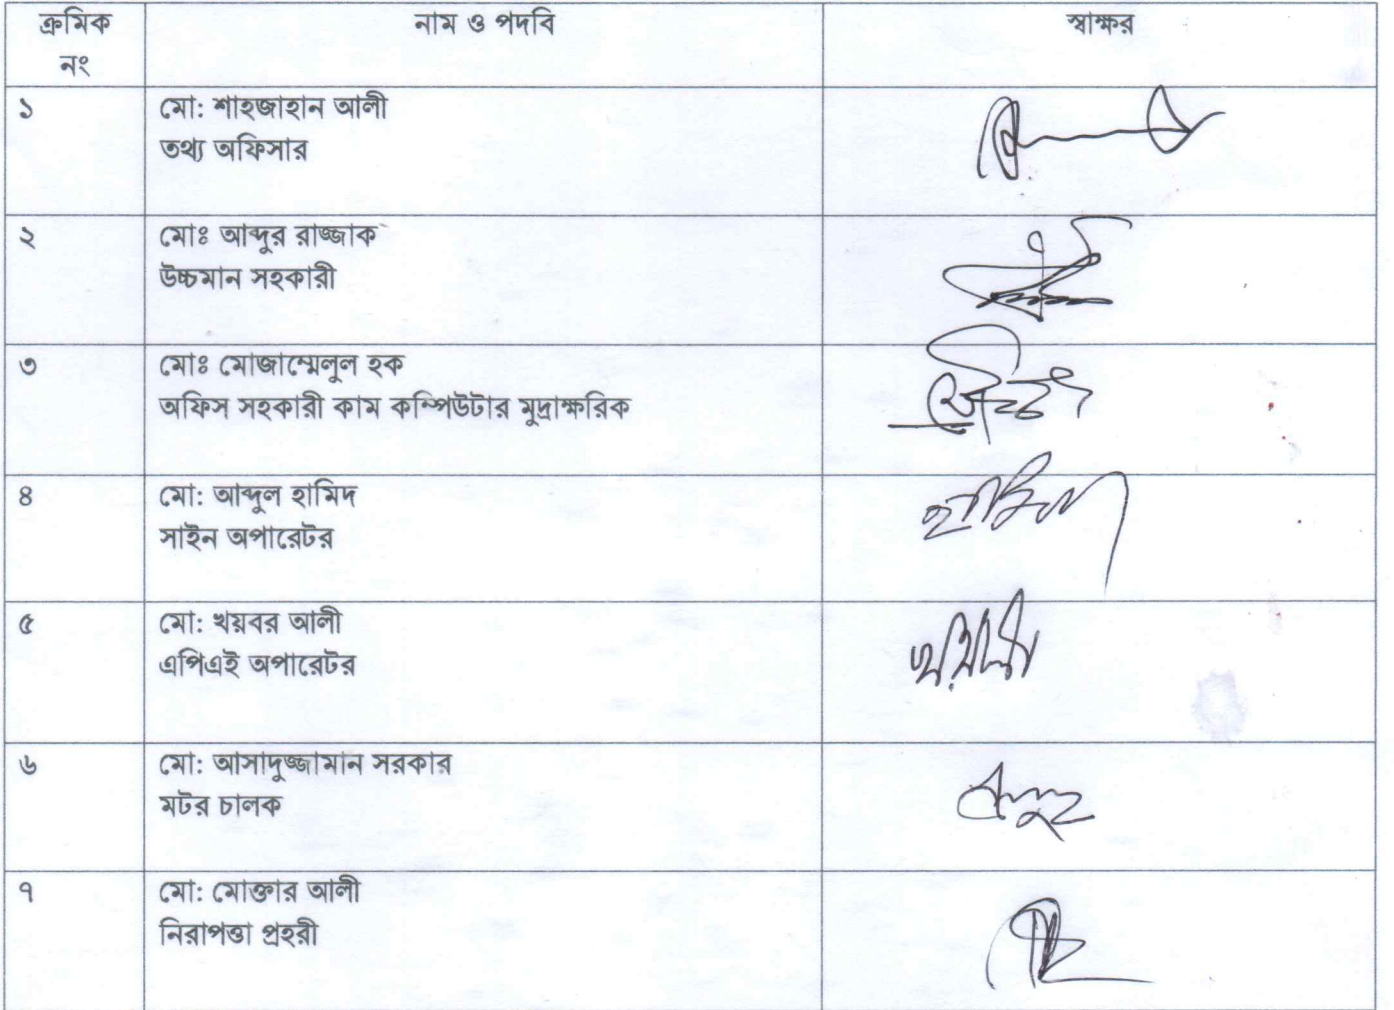 ক্রমিক নং নাম ও পদবি স্বাক্ষর
১ মো: শাহজাহান আলী
তথ্য অফিসার
২ মোঃ আব্দুর রাজ্জাক
উচ্চমান সহকারী
৩ মোঃ মোজাম্মেলুল হক
অফিস সহকারী কাম কম্পিউটার মুদ্রাক্ষরিক
৪ মো: আব্দুল হামিদ
সাইন অপারেটর
৫ মো: খয়বর আলী
এপিএই অপারেটর
৬ মো: আসাদুজ্জামান সরকার
মটর চালক
৭ মো: মোক্তার আলী
নিরাপত্তা প্রহরী